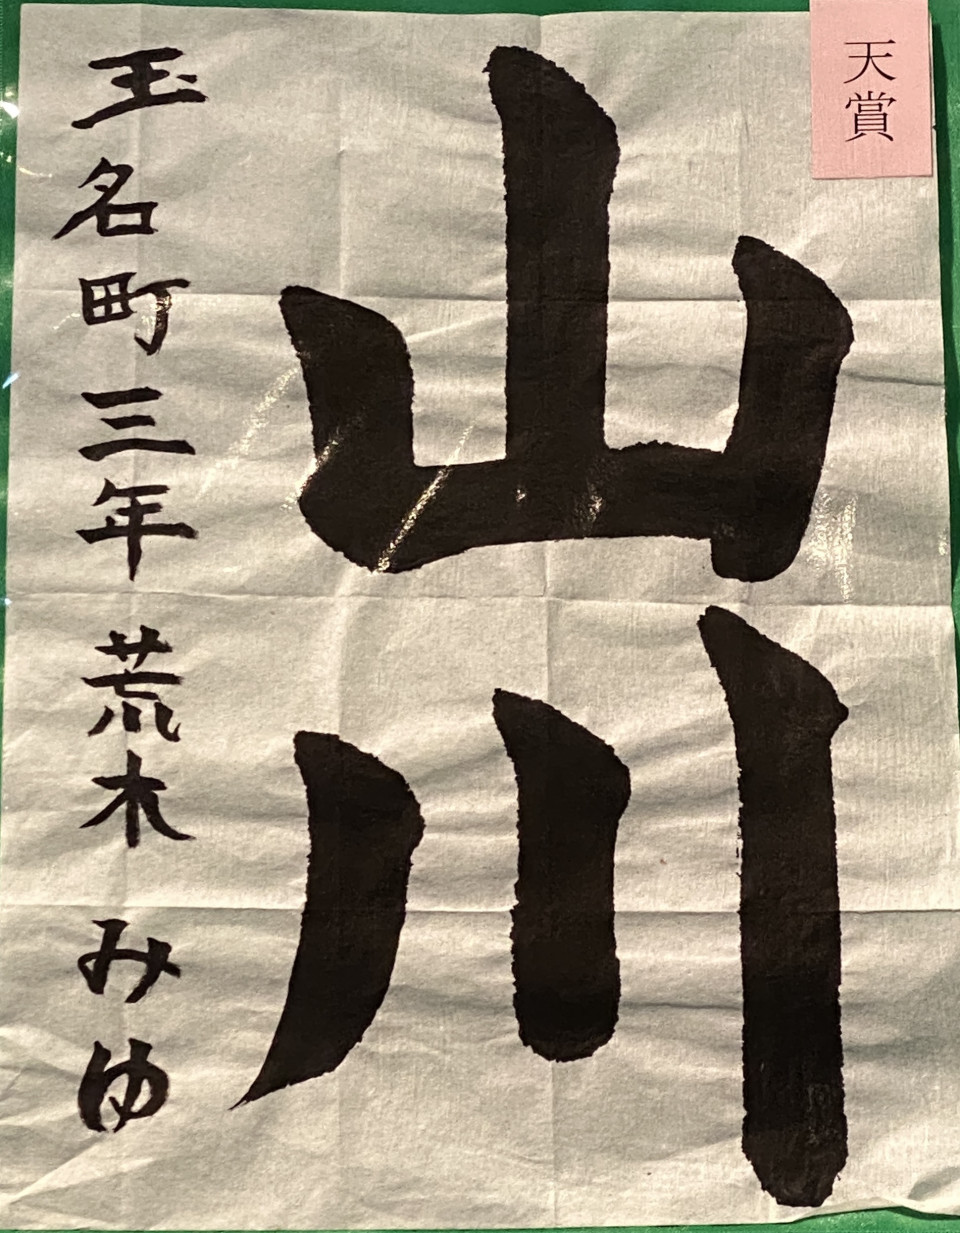 天賞
山川
玉名町三年 荒木 みゆ